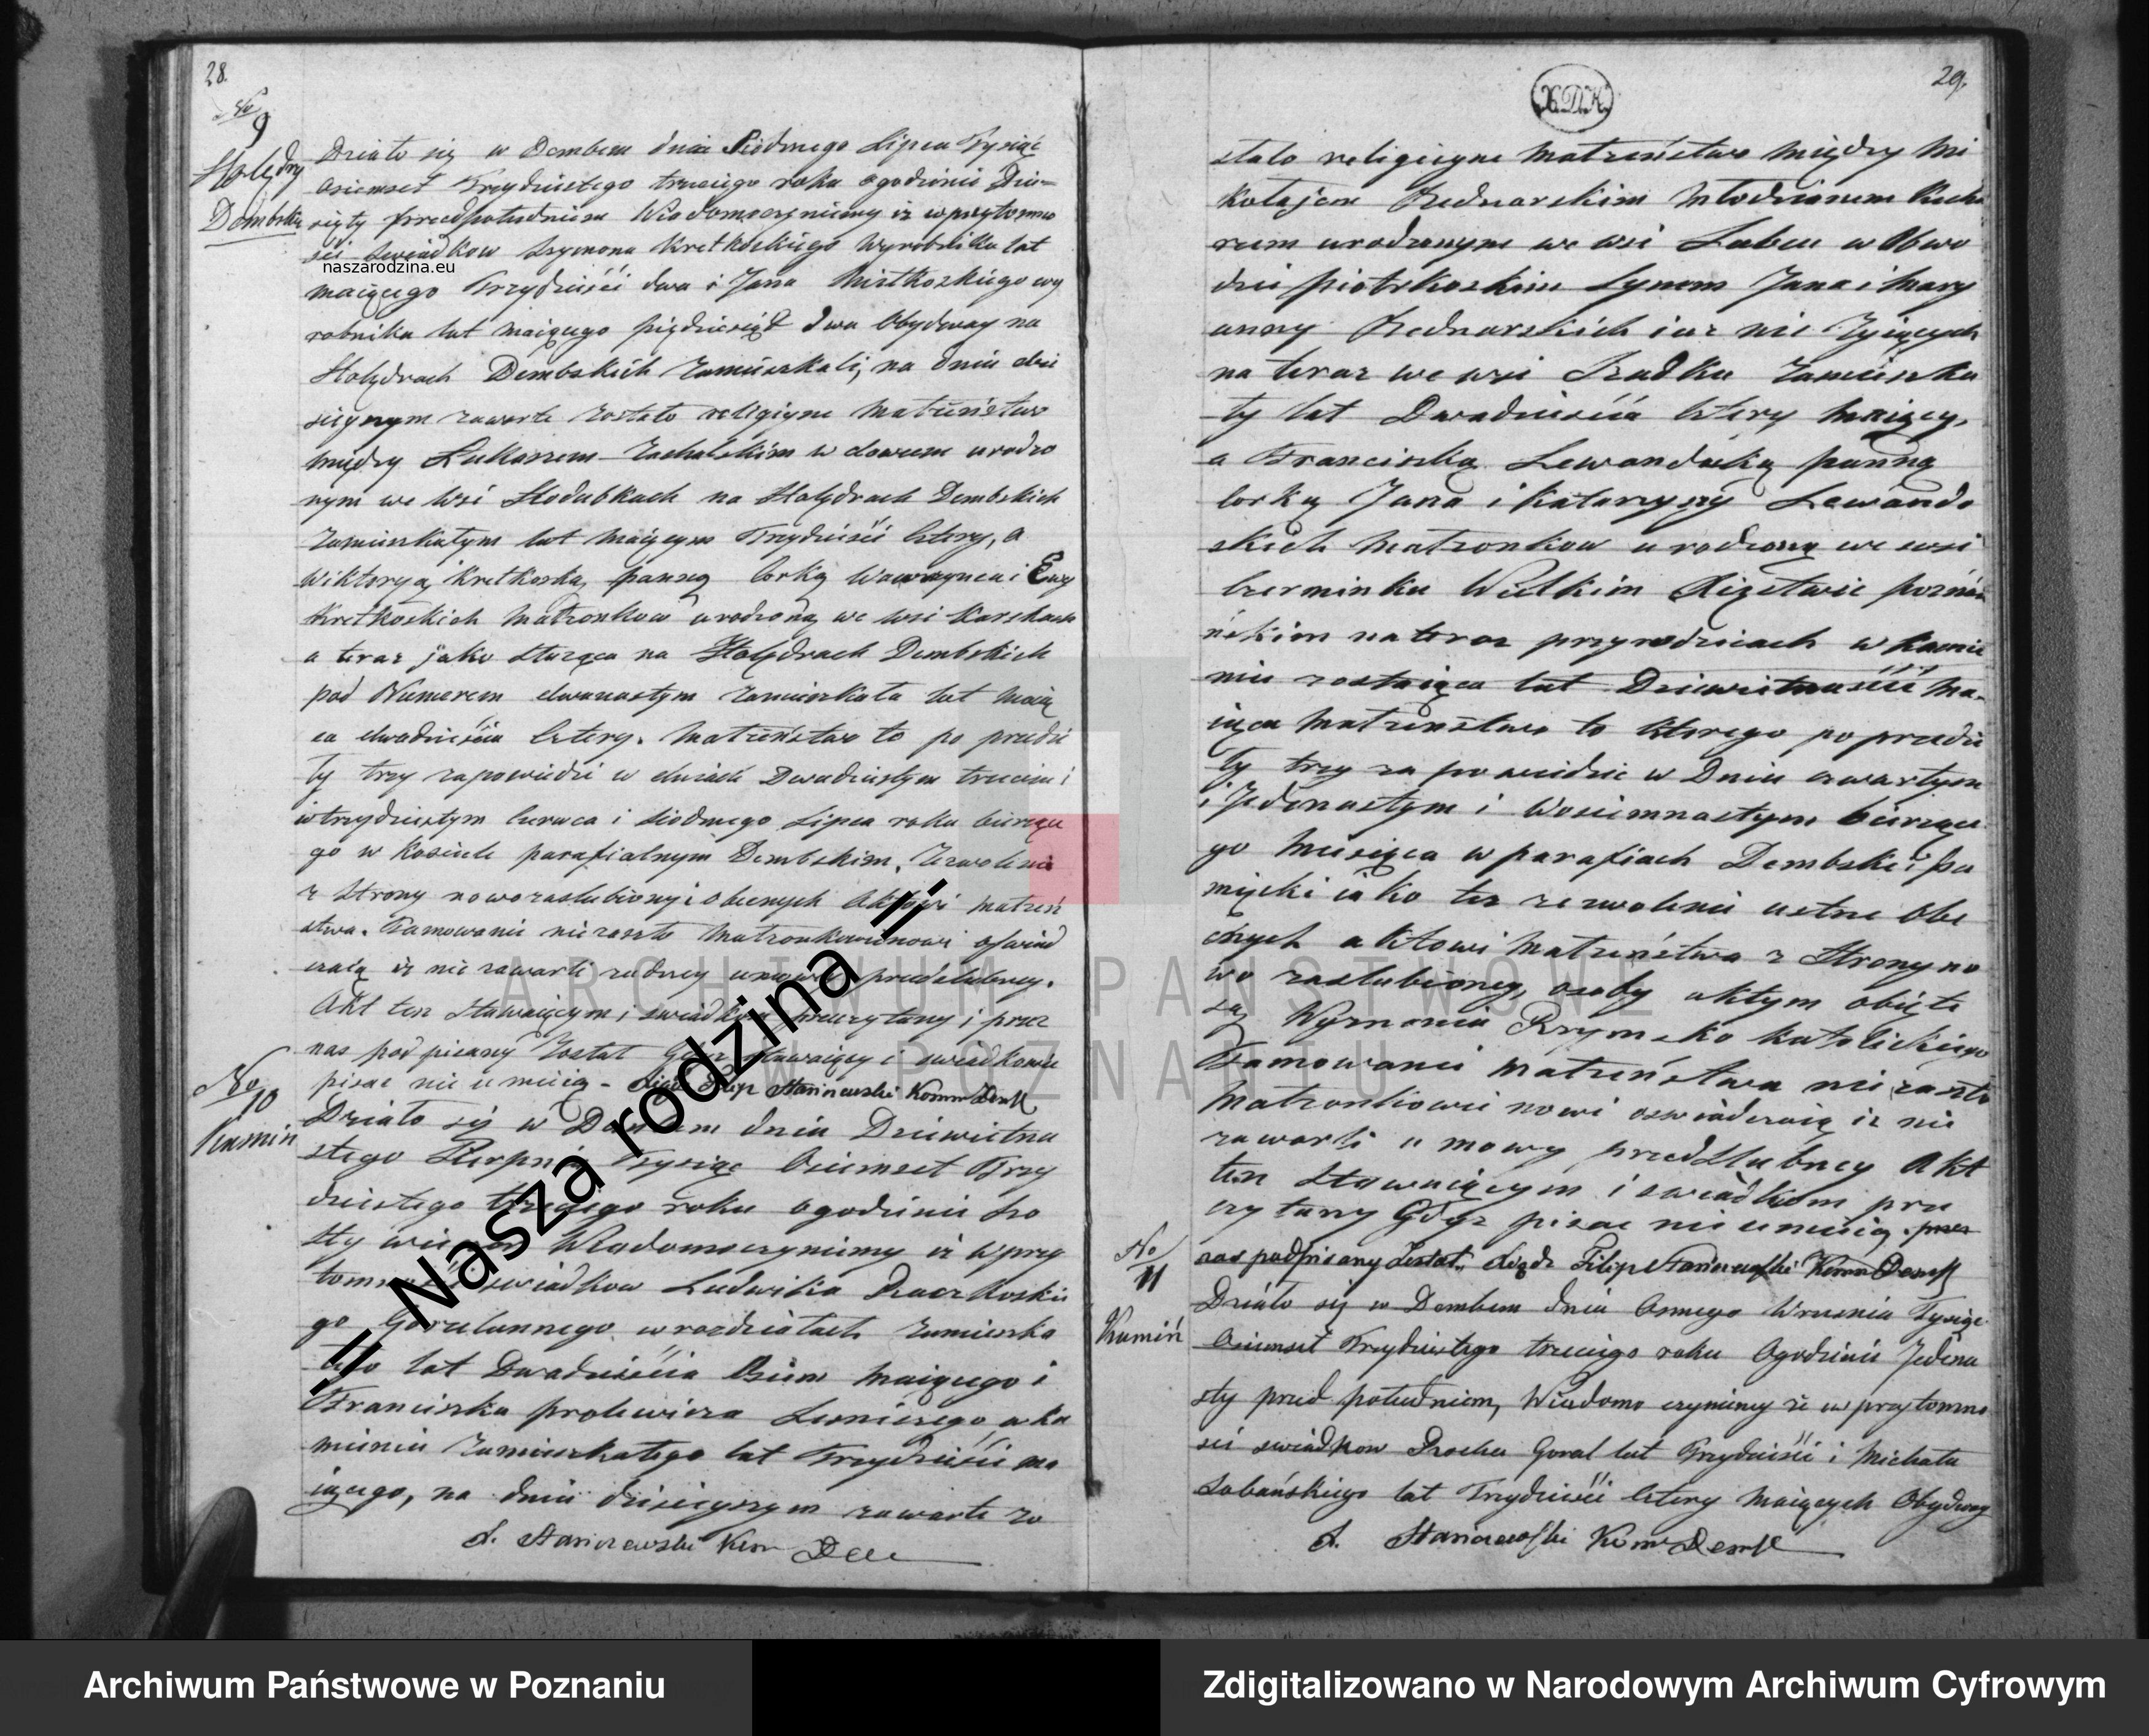 28.
No 9
Holędry Dembskie
Działo się w Dembem dnia Siódmego Lipca Tysiąc
osiemset Trzydziestego trzeciego roku o godzinie Dzie-
siąty przed południem Wiadomo czyniemy iż w przytomno
ści Swiadkow Szymona Kretkoskiego Wyrobnika lat
naszarodzina.eu
maiącego Trzydzieści dwa i Jana Mistkoskiego wy
robnika lat maiącego pięćdziesiąt dwa Obydway na
Holędrach Dembskich zamieszkali, na dniu dzi
sieyszym zawarte zostało religiyne małżeństwo
między Łukaszem Zachalskim wdowcem urodzo
nym we wsi Hodubkach na Holędrach Dembskich
zamieszkałym lat maiącym Trzydzieści cztery, a
Wiktoryą Kretkoską panną Corką Wawrzynca i Ewy
Kretkoskich małżonkow urodzoną we wsi
a teraz jako służąca na Holędrach Dembskich
pod Numerem dwunastym zamieszkała lat maią
ca dwadzieścia cztery. Małżeństwo to po przedzi
ły trzy zapowiedzi w dniach Dwudziestym trzecim i
i trzydziestym Czerwca i Siódmego Lipca roku bieżące
go w Kościele parafialnym Dembskim, Zezwolenie
z Strony nowozaślubiony i obecnych Aktowi małżeń
stwa. Tamowanie nie zaszło Małżonkowie nowi oświad
czaią iż nie zawarli żadney umowy przedślubney.
Akt ten Stawaiącym i swiadkom przeczytany i przez
nas podpisany Został Gdyż stawaiący i swiadkowie
pisać nie umieią - Xiądz Filip Staniszewski Komm Demb
No 10
Kamiń
Działo się w Dembem dnia Dziewietna
stego Sierpnia Tysiąc Osiemset Trzy
dziestego trzeciego roku o godzinie szo
sty wieczor Wiadomo czyniemy iż w przy
tomności swiadkow Ludwika Raczkoskie
go Gorzelannego w rozdziałach zamieszka
łego lat Dwadzieścia Osiem maiącego i
Franciszka prolewicza Leśniczego w ka
mieniu Zamieszkałego lat Trzydzieści ma
iącego, na dniu dzisieyszym zawarte zo
X. Staniszewski Kom Dem
29.
X.D.K.
stało religiyne Małżeństwo między Mi
kołajem Bednarskim Młodzianem Kucha
rzem urodzonym we wsi Lubcu w Obwo
dzie piotrkoskim Synem Jana i Mary
anny Bednarskich iuż nie Żyiących
na teraz we wsi Rudku Zamieszka
ły lat Dwadzieścia Cztery maiący,
a Franciszką Lewandoską panną
Corką Jana i Katarzyny Lewando
skich Małżonkow urodzoną we wsi
Czerminku Wielkim Xięstwie poznań
ńskim na teraz przy rodzicach w Kamie
niu zostaiąca lat Dziewietnaście ma-
iąca Małżeństwo to którego poprzedzi
ły trzy zapowiedzie w Dniu czwartym
i Jedenastym i Wosiemnastym bieżące
go Miesiąca w parafiach Dembski i Pa
mięcki iako też zezwolenie ustne Obe
cnych aktowi Małżeństwa z Strony no
wo zaślubioney, osoby aktym obięte
są Wyznania Rzymsko katolickiego
Tamowanie małżeństwa nie zaszło
Małżonkowie nowi oswiadczaią iż nie
zawarli umowy przedślubney Akt
ten Stawaiącym i swiadkom prze
czytany Gdyż pisać nie umieią. przez
nas podpisany Został. Xiądz Filip Staniszewski Komm Demb
No 11
Kamiń
Działo się w Dembem dnia Osmego Wrzesnia Tysiąc
Osiemset Trzydziestego trzeciego roku Ogodzinie Jedena
sty przed południem, Wiadomo czyniemy iż w przytomno
ści swiadkow Rocha Goral lat Trzydzieści i Michała
Łobańskiego lat Trzydzieści Cztery maiących Obydway
X. Staniszewski Kom Demb
ARCHIWUM PAŃSTWOWE
W POZNANIU
=| Nasza rodzina |=
Archiwum Państwowe w Poznaniu
Zdigitalizowano w Narodowym Archiwum Cyfrowym